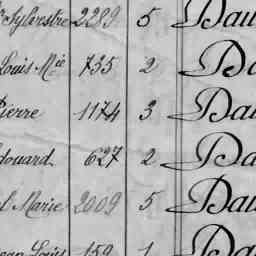 Sylvestre 2289 5 Dau
Louis-Mie 735 2 Da
Pierre 1174 3 Dau
douard 627 2 Da
l Marie 2009 5 Dau
ean Louis 159 1 Da